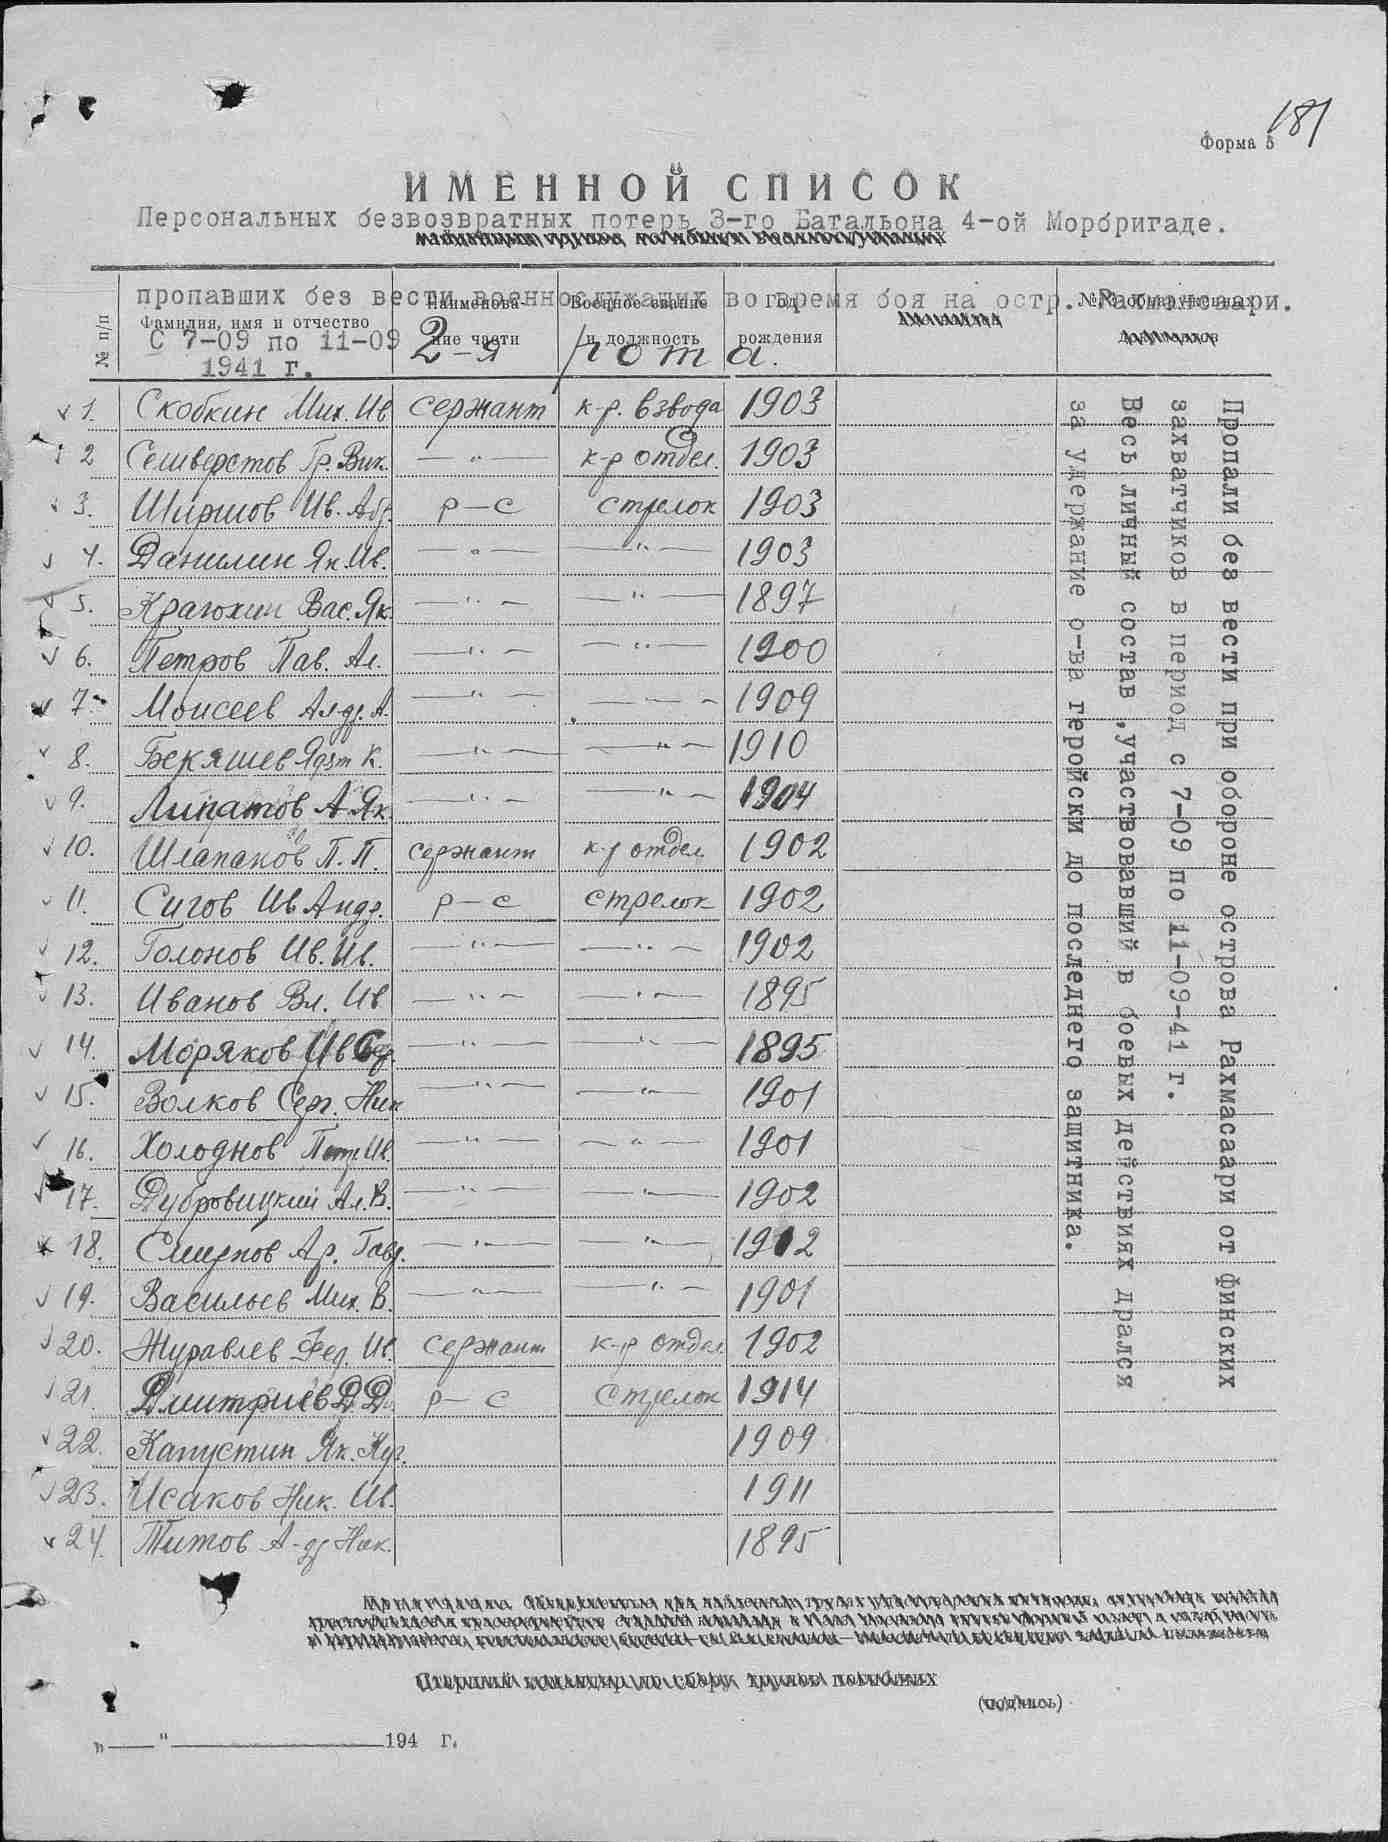 181
Форма 5
ИМЕННОЙ СПИСОК
Персональных безвозвратных потерь 3-го Батальона 4-ой Морбригаде.
пропавших без вести военнослужащих во время боя на остр. Рахмансаари.
С 7-09 по 11-09 1941 г.
№ п/п Фамилия, имя и отчество Наименование части Военное звание и должность Год рождения
2-я рота.
1. Скобкин Мих. Ив сержант к-р. взвода 1903
2 Селиверстов Гр. Вик. —"— к-р отдел. 1903
3. Ширшов Ив. Абр. р-с стрелок 1903
4. Данилин Як. Ив. —"— —"— 1903
5. Крагюхин Вас. Як. —"— —"— 1897
6. Петров Пав. Ал. —"— —"— 1900
7. Моисеев Ал-др. А. —"— — — — 1909
8. Бекяшев К. —"— —"— 1910
9. Липатов А Як. —"— —"— 1904
10. Шлапаков П. П. сержант к-р отдел. 1902
11. Сигов Ив Андр. р-с стрелок 1902
12. Голонов Ив. Ив. —"— —"— 1902
13. Иванов Вл. Ив —"— —"— 1895
14. Моряков Ив —"— —"— 1895
15. Волков Серг. Ник —"— —"— 1901
16. Холоднов Петр Ив. —"— —"— 1901
17. Дубровицкий Ал. В. —"— —"— 1902
18. Смирнов Ар. Гавр. —"— —"— 1912
19. Васильев Мих. В. —"— —"— 1901
20. Журавлев Фед. Ив. сержант к-р отдел 1902
21. Дмитриев Д. Д. р-с стрелок 1914
22. Капустин Як. Куз. 1909
23. Исаков Ник. Ив. 1911
24. Титов А-др Ник. 1895
Пропали без вести при обороне острова Рахмасаари от финских
захватчиков в период с 7-09 по 11-09-41 г.
Весь личный состав ,участвовавший в боевых действиях дрался
за удержание о-ва геройски до последнего защитника.
(подпись)
"___"__________194 г.